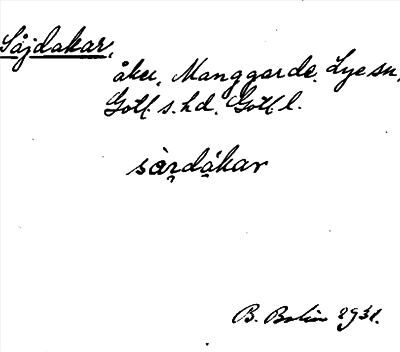 Såjdakar,
åker, Manggarde, Lye sn,
Gotl. s. hd. Gotl. l.
sàrdákar
B. Bolin 1931.